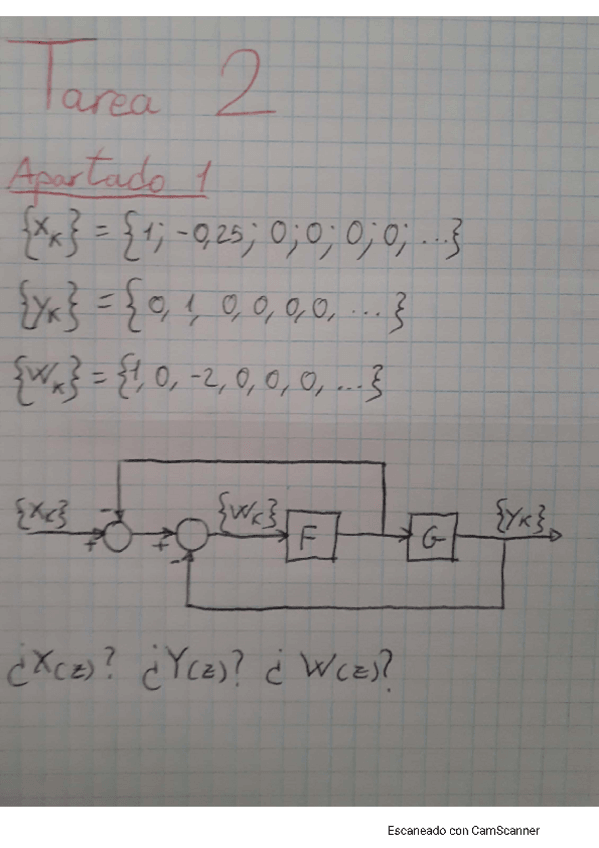 Tarea 2
Apartado 1
{x_k} = {1; -0,25; 0; 0; 0; 0; ...}
{y_k} = {0, 1, 0, 0, 0, 0, ...}
{w_k} = {1, 0, -2, 0, 0, 0, ...}
{x_k} - + + - {w_k} F G {y_k}
¿X(z)? ¿Y(z)? ¿W(z)?
Escaneado con CamScanner